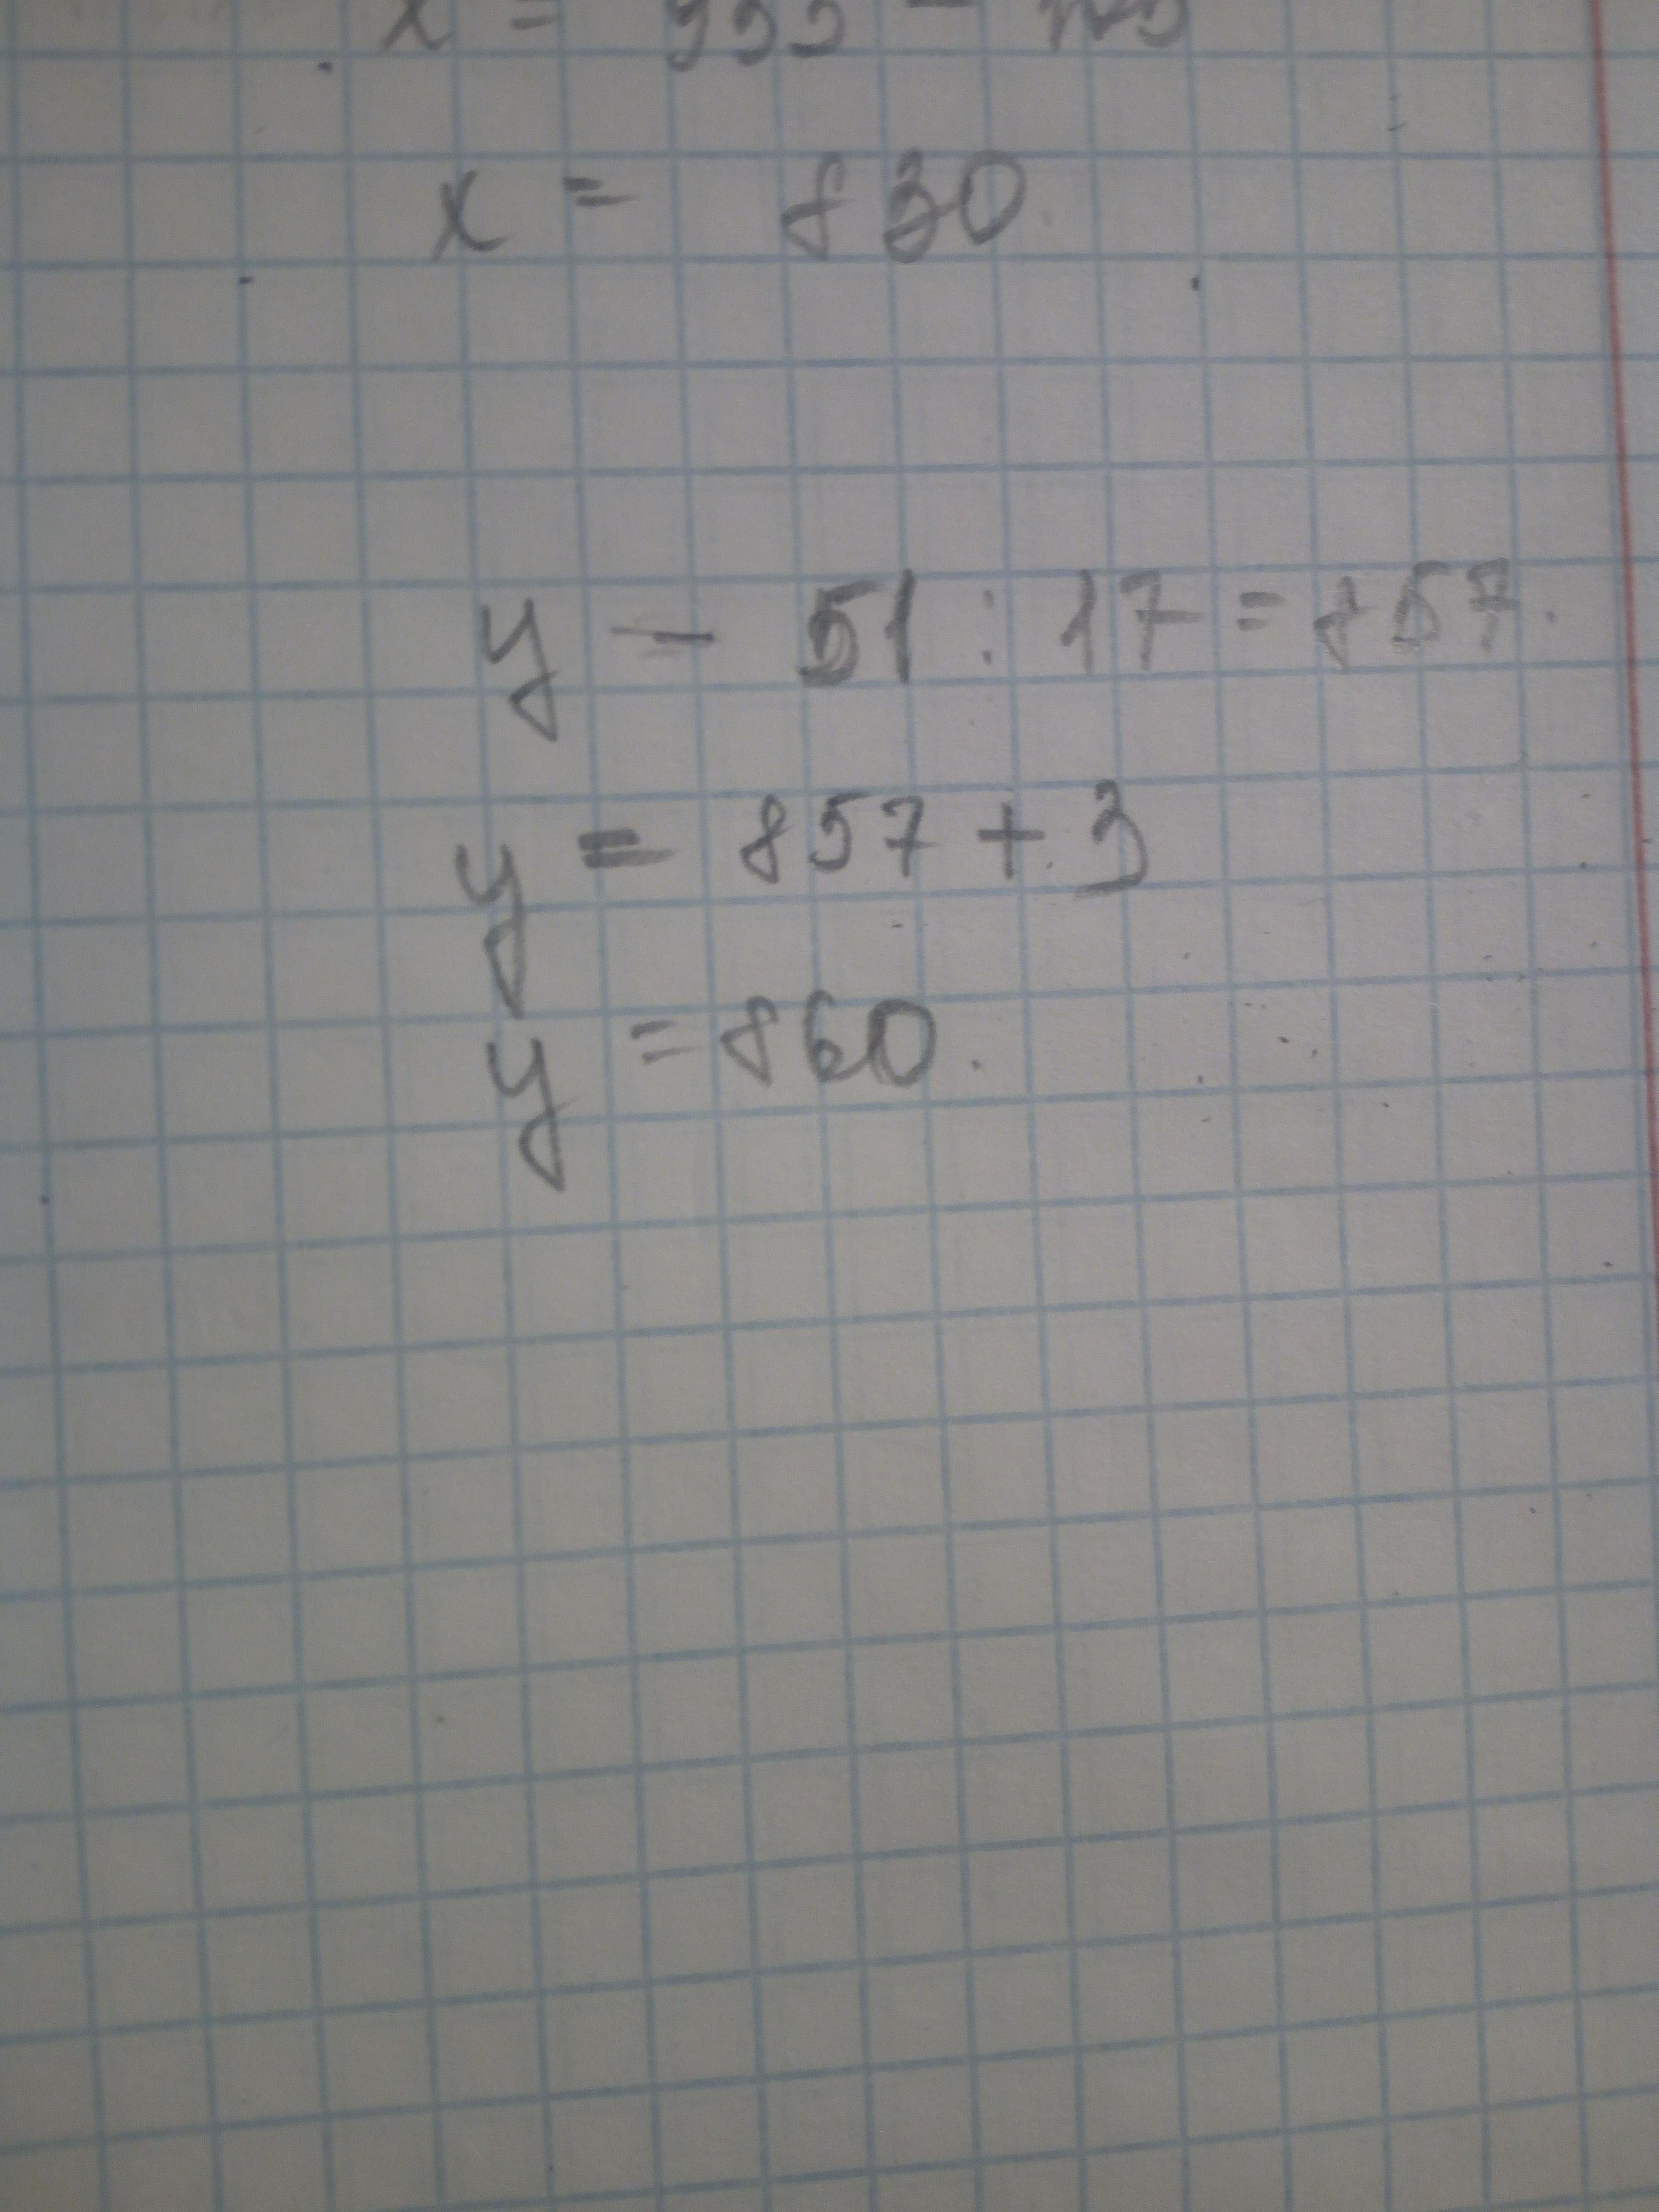 x = 953 -
x = 830
y - 51 : 17 = 857.
y = 857 + 3
y = 860.